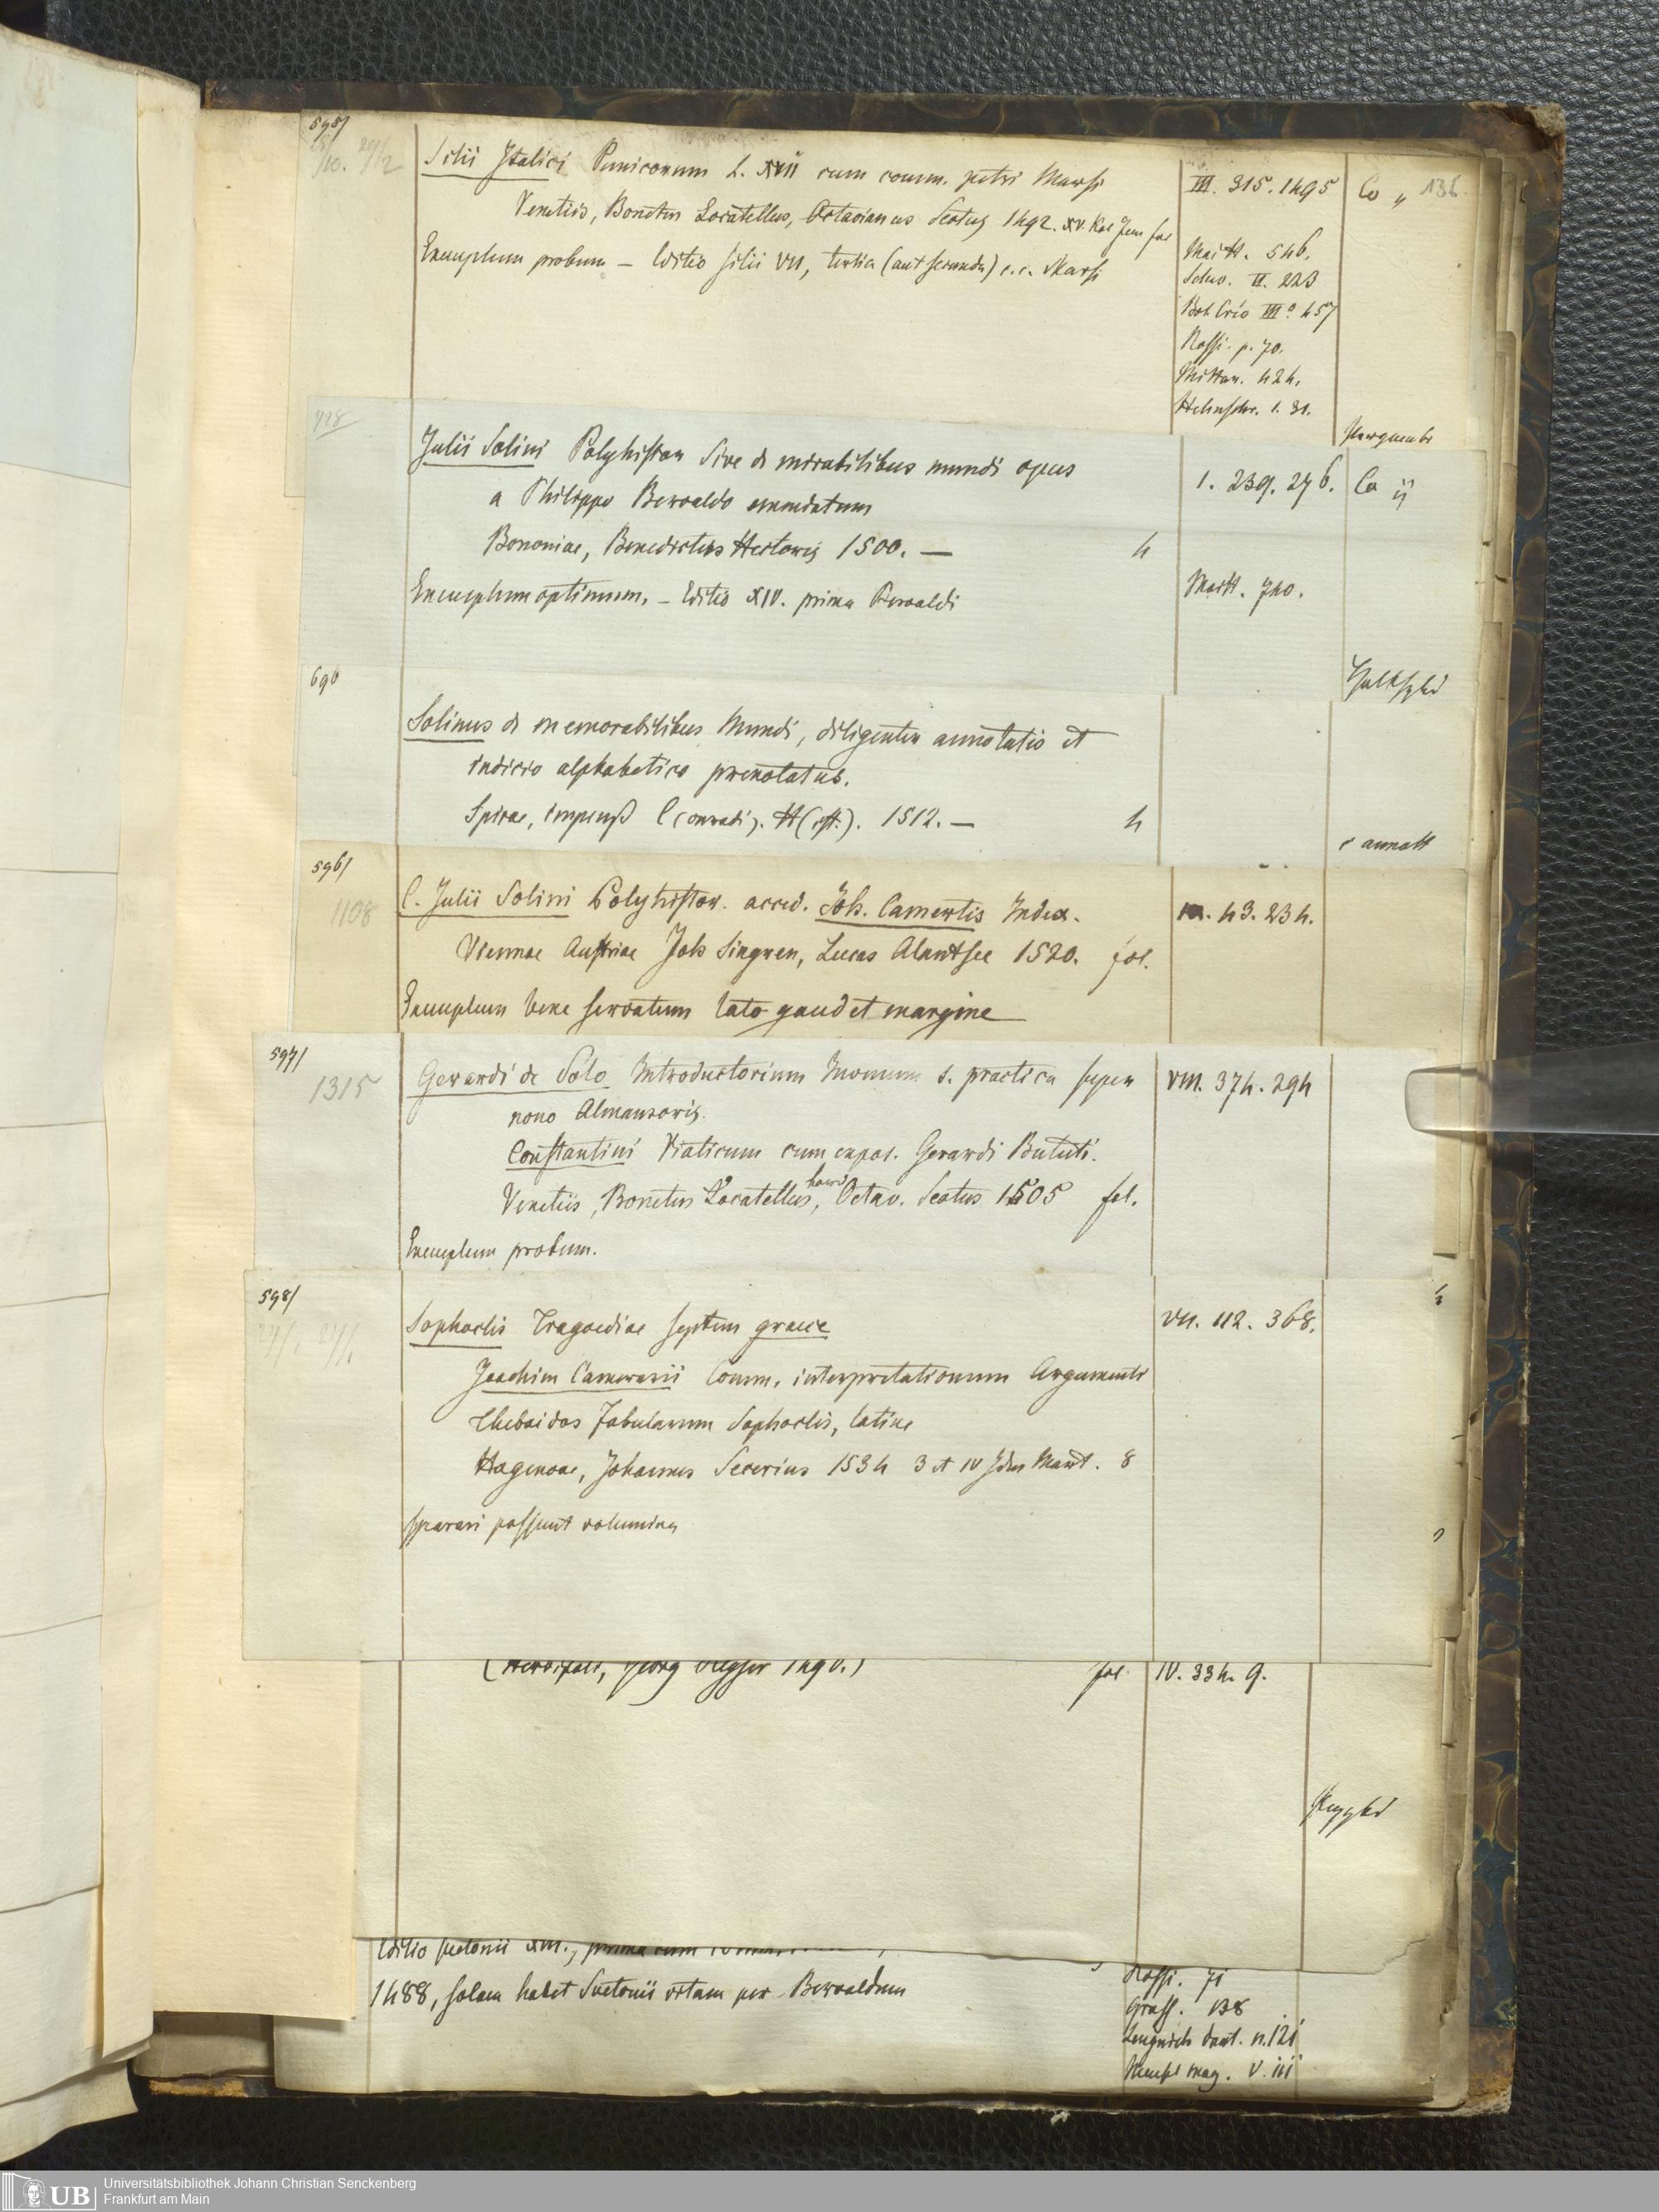 595/
Silii Italici Punicorum L. XVII cum comm. petri Marsi
III. 315. 1495
Co „ 136
Venetiis, Bonetus Locatellus, Octavianus Scotus 1492. XV. Kal Jun fol
Exemplum probum – Editio silii VII, tertia (aut secunda) c. c. Marsi
Maitt. 546.
II. 223
III
Rossi. p. 70.
Mittar. 424.
1. 31.
728
Julii Solini Polyhistor sive de mirabilibus mundi opus
1. 239. 276.
Co ij
a Philippo Beroaldo emendatum
Bononiae, Benedictus Hectoris 1500. — 4
Exemplum optimum. – Editio XIV. prima Beroaldi
Maitt. 740.
696
Solinus de memorabilibus Mundi, diligenter annotatio et
indicio alphabetico prenotatus.
Spirae, impensß C(onradi). H(ist.). 1512. — 4
c annott
596/
1108
C. Julii Solini Polyhistor. acced. Joh. Camertis Index.
43. 234.
Viennae Austriae Joh Singren, Lucas Alantsee 1520. fol.
Exemplum bene servatum lato gaudet margine
597/
1315
Gerardi de Solo Introductorium Juvenum s. practica super
VIII. 374. 294
nono Almansoris.
Constantini Viaticum cum expos. Gerardi Bututi.
Venetiis, Bonetus Locatellus, Octav. Scotus 1505 fol.
Exemplum probum.
598/
Sophoclis Tragoediae septem graece
VII. 112. 368.
Joachim Camerarii Comm. interpretationum Argumenti
Thebaidos Fabularum Sophoclis, latine
Hagenoae, Johannes Secerius 1534 3 et IV Idus Mart. 8
separari possunt volumina
(Herbipoli, Georg Reyser 1490.) fol
IV. 334. 9.
Editio suetonii XIII., prima cum
1488, solam habet Suetonii vitam per Beroaldum
Rossi. 71
138
n. 121
mag. V. iii
UB
Universitätsbibliothek Johann Christian Senckenberg
Frankfurt am Main